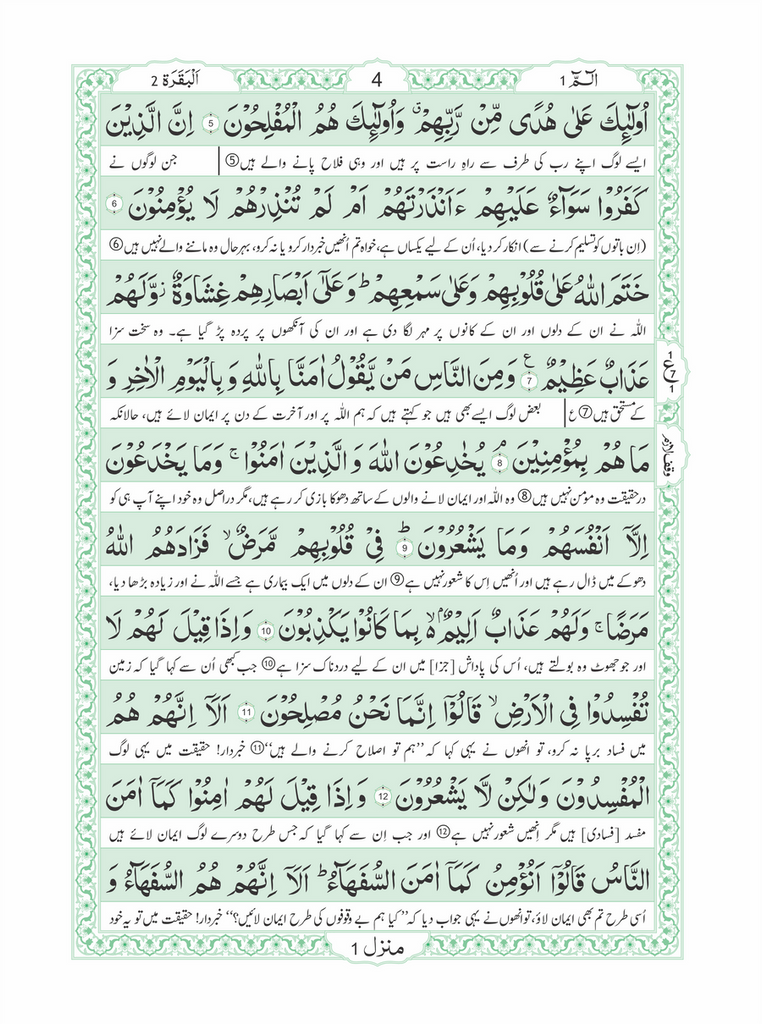 الٓمّٓ 1
4
اَلْبَقَرَة 2
اُولٰٓئِكَ عَلٰى هُدًى مِّنْ رَّبِّهِمْ ۙ وَاُولٰٓئِكَ هُمُ الْمُفْلِحُوْنَ 5 اِنَّ الَّذِيْنَ
ایسے لوگ اپنے رب کی طرف سے راہِ راست پر ہیں اور وہی فلاح پانے والے ہیں⑤ جن لوگوں نے
كَفَرُوْا سَوَآءٌ عَلَيْهِمْ ءَاَنْذَرْتَهُمْ اَمْ لَمْ تُنْذِرْهُمْ لَا يُؤْمِنُوْنَ 6
(اِن باتوں کو تسلیم کرنے سے) انکار کر دیا، اُن کے لیے یکساں ہے، خواہ تم اُنھیں خبردار کرو یا نہ کرو، بہرحال وہ ماننے والے نہیں ہیں⑥
خَتَمَ اللّٰهُ عَلٰى قُلُوْبِهِمْ وَعَلٰى سَمْعِهِمْ ؕ وَعَلٰٓى اَبْصَارِهِمْ غِشَاوَةٌ ز وَّلَهُمْ
اللہ نے ان کے دلوں اور ان کے کانوں پر مہر لگا دی ہے اور ان کی آنکھوں پر پردہ پڑ گیا ہے۔ وہ سخت سزا
عَذَابٌ عَظِيْمٌ 7 ع وَمِنَ النَّاسِ مَنْ يَّقُوْلُ اٰمَنَّا بِاللّٰهِ وَ بِالْيَوْمِ الْاٰخِرِ وَ
1 ع 7 1
کے مستحق ہیں⑦ ع بعض لوگ ایسے بھی ہیں جو کہتے ہیں کہ ہم اللہ پر اور آخرت کے دن پر ایمان لائے ہیں، حالانکہ
مَا هُمْ بِمُؤْمِنِيْنَ 8 ۘ يُخٰدِعُوْنَ اللّٰهَ وَ الَّذِيْنَ اٰمَنُوْا ۚ وَمَا يَخْدَعُوْنَ
وقف لازم
درحقیقت وہ مومن نہیں ہیں⑧ وہ اللہ اور ایمان لانے والوں کے ساتھ دھوکا بازی کر رہے ہیں، مگر دراصل وہ خود اپنے آپ ہی کو
اِلَّآ اَنْفُسَهُمْ وَمَا يَشْعُرُوْنَ 9 ؕ فِيْ قُلُوْبِهِمْ مَّرَضٌ ۙ فَزَادَهُمُ اللّٰهُ
دھوکے میں ڈال رہے ہیں اور اُنھیں اِس کا شعور نہیں ہے⑨ ان کے دلوں میں ایک بیماری ہے جسے اللہ نے اور زیادہ بڑھا دیا،
مَرَضًا ۚ وَلَهُمْ عَذَابٌ اَلِيْمٌ ۢ ۙ بِمَا كَانُوْا يَكْذِبُوْنَ 10 وَاِذَا قِيْلَ لَهُمْ لَا
اور جو جھوٹ وہ بولتے ہیں، اُس کی پاداش [جزا] میں ان کے لیے دردناک سزا ہے⑩ جب کبھی اُن سے کہا گیا کہ زمین
تُفْسِدُوْا فِي الْاَرْضِ ۙ قَالُوْٓا اِنَّمَا نَحْنُ مُصْلِحُوْنَ 11 اَلَآ اِنَّهُمْ هُمُ
میں فساد برپا نہ کرو، تو انھوں نے یہی کہا کہ ”ہم تو اصلاح کرنے والے ہیں“⑪ خبردار! حقیقت میں یہی لوگ
الْمُفْسِدُوْنَ وَلٰكِنْ لَّا يَشْعُرُوْنَ 12 وَ اِذَا قِيْلَ لَهُمْ اٰمِنُوْا كَمَآ اٰمَنَ
مفسد [فسادی] ہیں مگر اِنھیں شعور نہیں ہے⑫ اور جب اِن سے کہا گیا کہ جس طرح دوسرے لوگ ایمان لائے ہیں
النَّاسُ قَالُوْٓا اَنُؤْمِنُ كَمَآ اٰمَنَ السُّفَهَآءُ ؕ اَلَآ اِنَّهُمْ هُمُ السُّفَهَآءُ وَ
اُسی طرح تم بھی ایمان لاؤ، تو انھوں نے یہی جواب دیا کہ ”کیا ہم بے وقوفوں کی طرح ایمان لائیں؟“ خبردار! حقیقت میں تو یہ خود
منزل 1